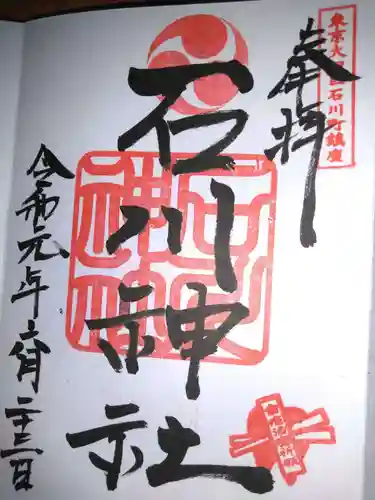 奉拝
東京大田区石川町鎮座
石川神社
令和元年六月二十三日